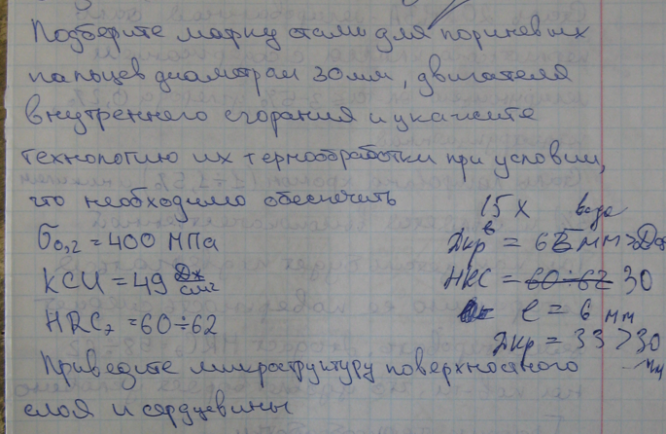 Подберите марку стали для поршневых
пальцев диаметром 30 мм, двигателя
внутреннего сгорания и укажите
технологию их термообработки при условии,
что необходимо обеспечить
σ0,2 = 400 МПа
KCU = 49 Дж/см²
HRCэ = 60÷62
Приведите микроструктуру поверхностного
слоя и сердцевины
15 Х вода
Дкр в = 65 мм > Дд
HRC = 60÷62 30
l = 6 мм
Дкр = 33 > 30
мм